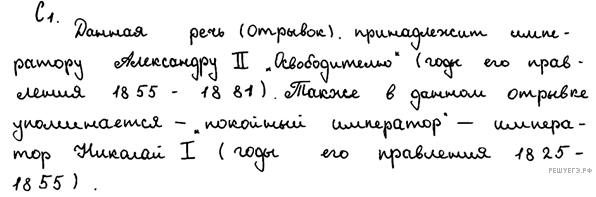 С1.
Данная речь (отрывок). принадлежит импе-
ратору Александру II „Освободителю“ (годы его прав-
ления 1855 - 1881). Также в данном отрывке
упоминается – „покойный император“ – импера-
тор Николай I (годы его правления 1825 -
1855).
РЕШУЕГЭ.РФ